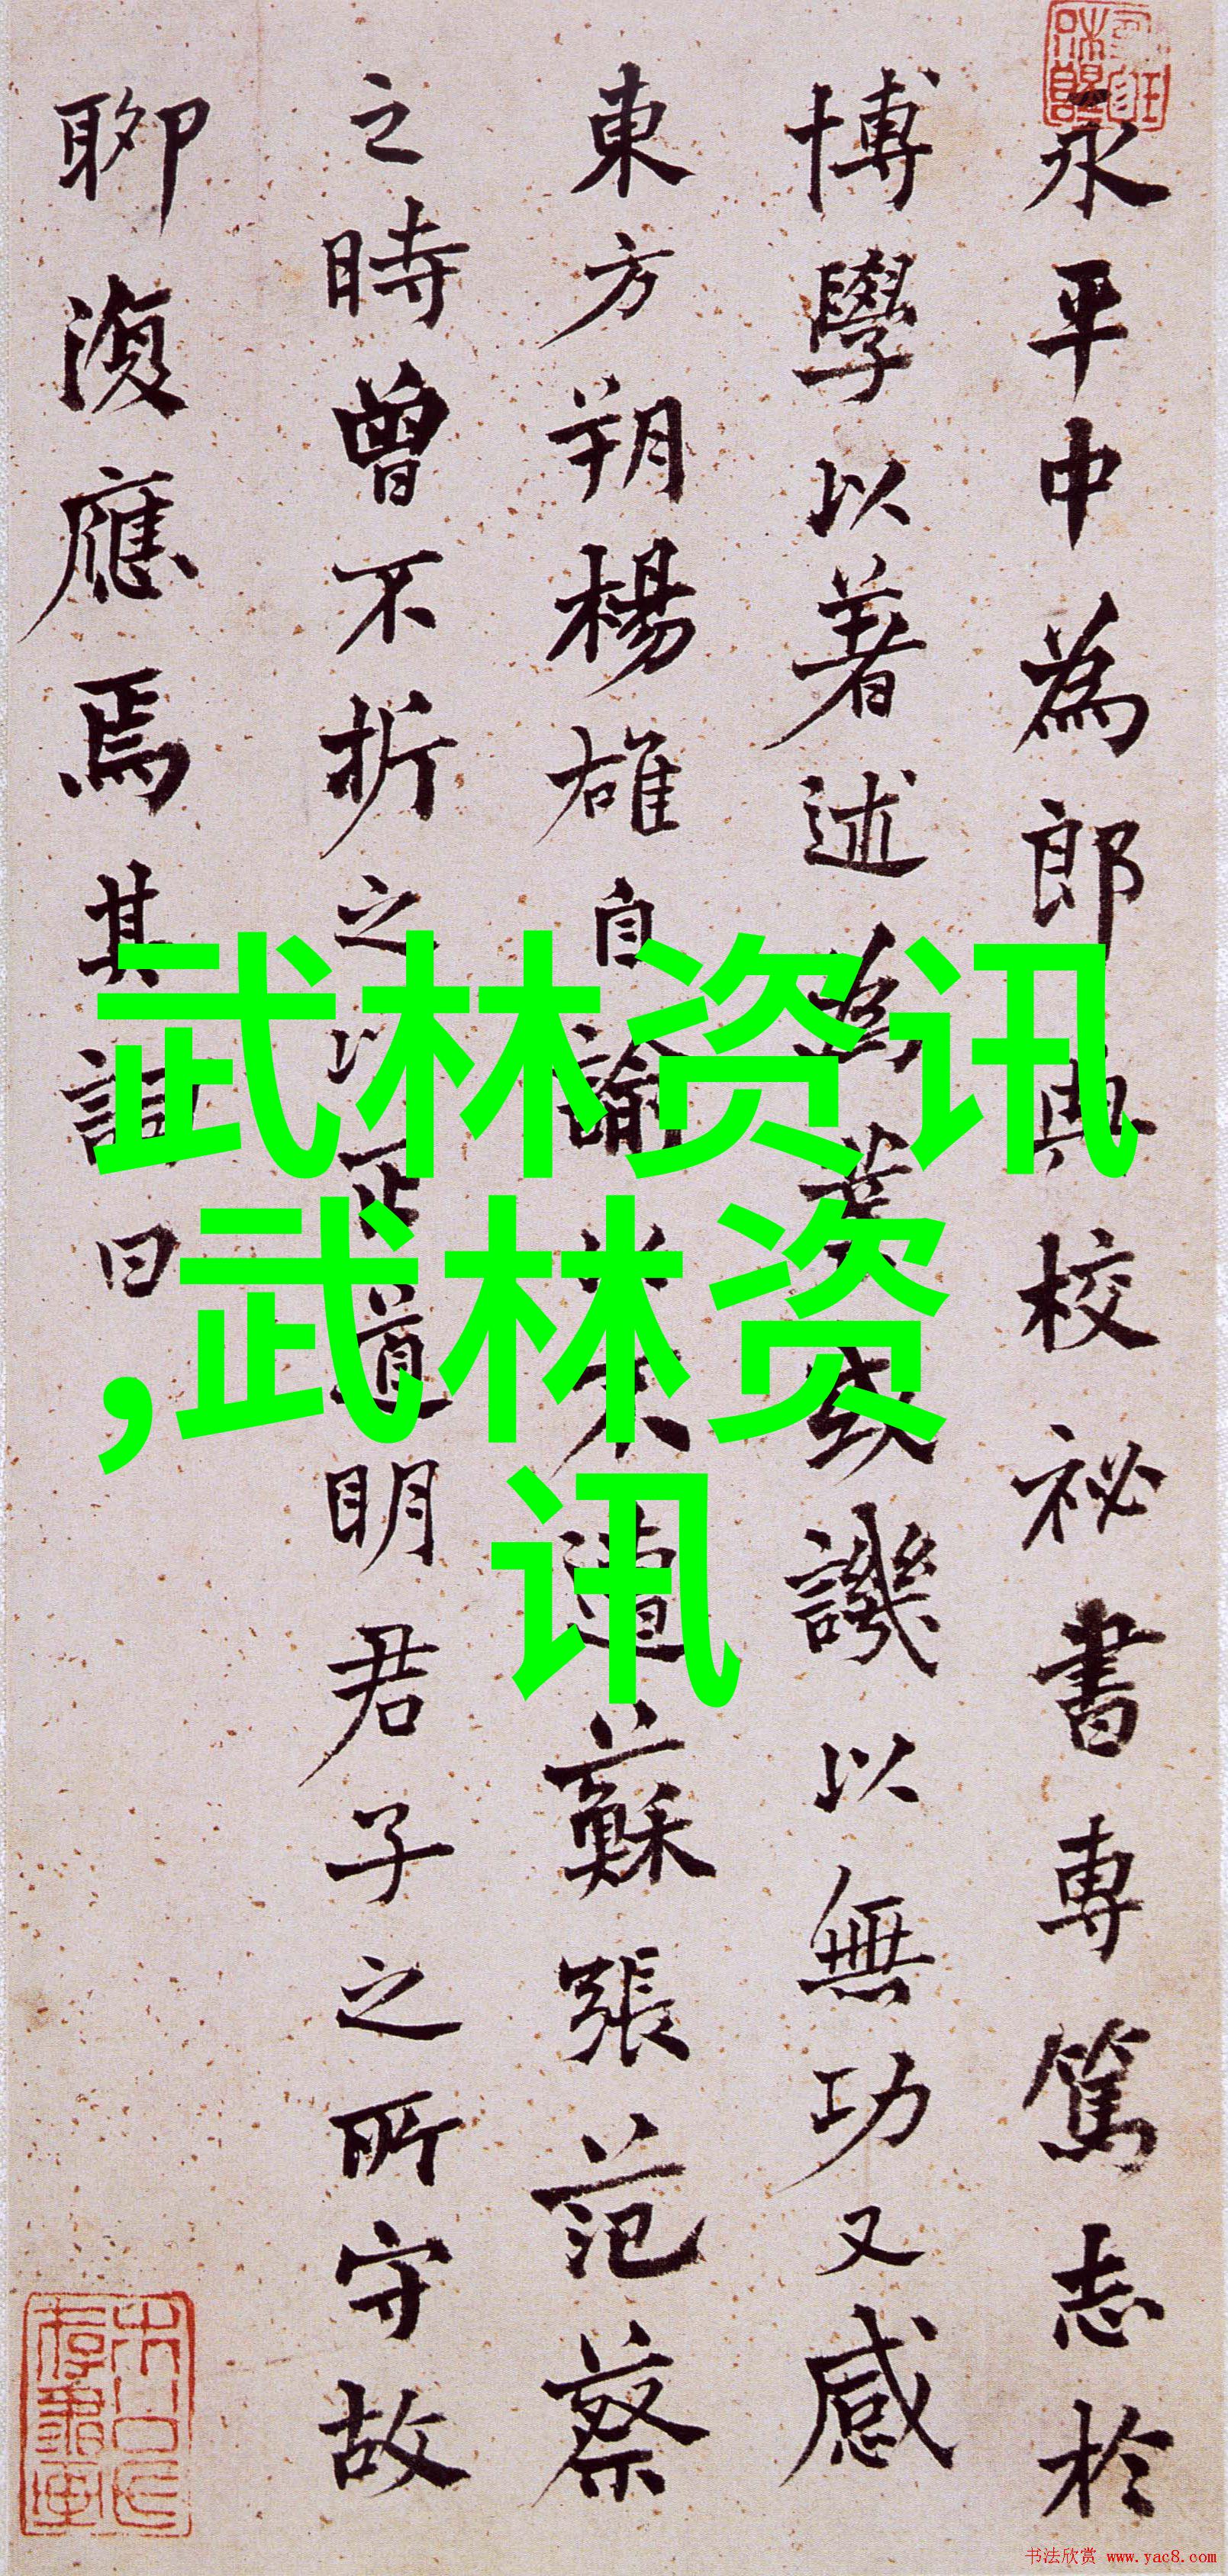 永平中為郎典校祕書專篤志於
博學以著述為業或譏以無功又感
東方朔楊雄自諭以不遭蘇張范蔡
之時曾不折之以正道明君子之所守故
聊復應焉其詞曰
武林资讯
,武林资
讯
书法欣赏 www.yac8.com